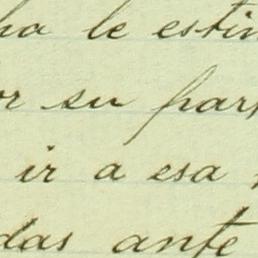 ha le estim
or su part
ir a esa
das ante